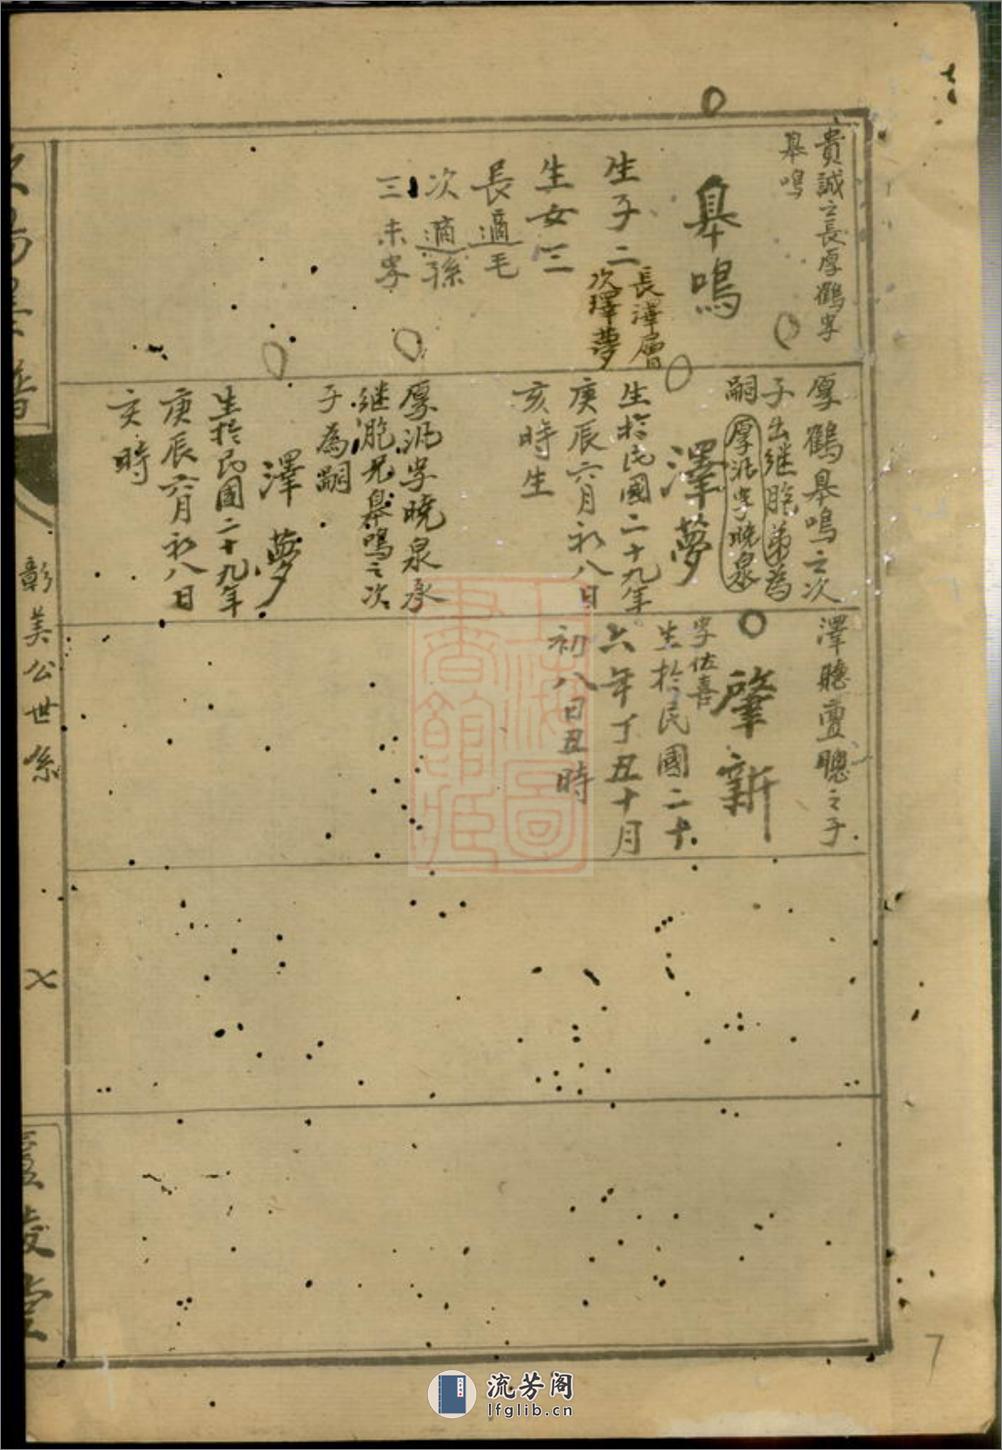 貴誠之長厚鶴字
皋鳴
皋鳴
生子二
長澤層
次澤夢
生女三
長適毛
次適孫
三未字
厚鶴皋鳴之次
子出继胞弟為
嗣厚汎字曉泉
澤夢
生於民國二十九年
庚辰六月初八日
亥時生
厚汎字曉泉承
继胞兄皋鳴之次
子為嗣
澤夢
生於民國二十九年
庚辰六月初八日
亥時
澤聽聰之子
肇新
字佐喜
生於民國二十
六年丁丑十月
初八日丑時
彰美公世系
七
上海圖書館藏
7
流芳阁
lfglib.cn